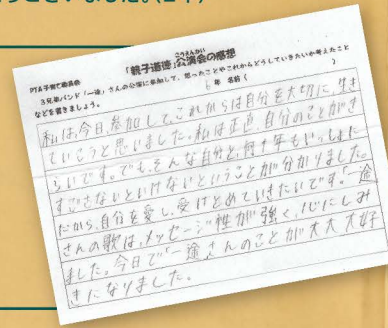 ございました。(2年)
PTA子育て委員会
「親子道徳」公演会の感想
こうえんかい
3兄弟バンド「一途」さんの公演に参加して、思ったことやこれからどうしていきたいか考えたこと
などを書きましょう。
6年 名前( )
私は、今日、参加して、これからは自分を大切に、生き
ていこうと思いました。私は正直、自分のことがき
らいです。でも、そんな自分と、何十年もいっしょに
すごさないといけないということが分かりました。
だから、自分を愛し、受けとめていきたいです。「一途」
さんの歌は、メッセージ性が強く、心にしみ
ました。今日で「一途」さんのことが大大大好
きになりました。